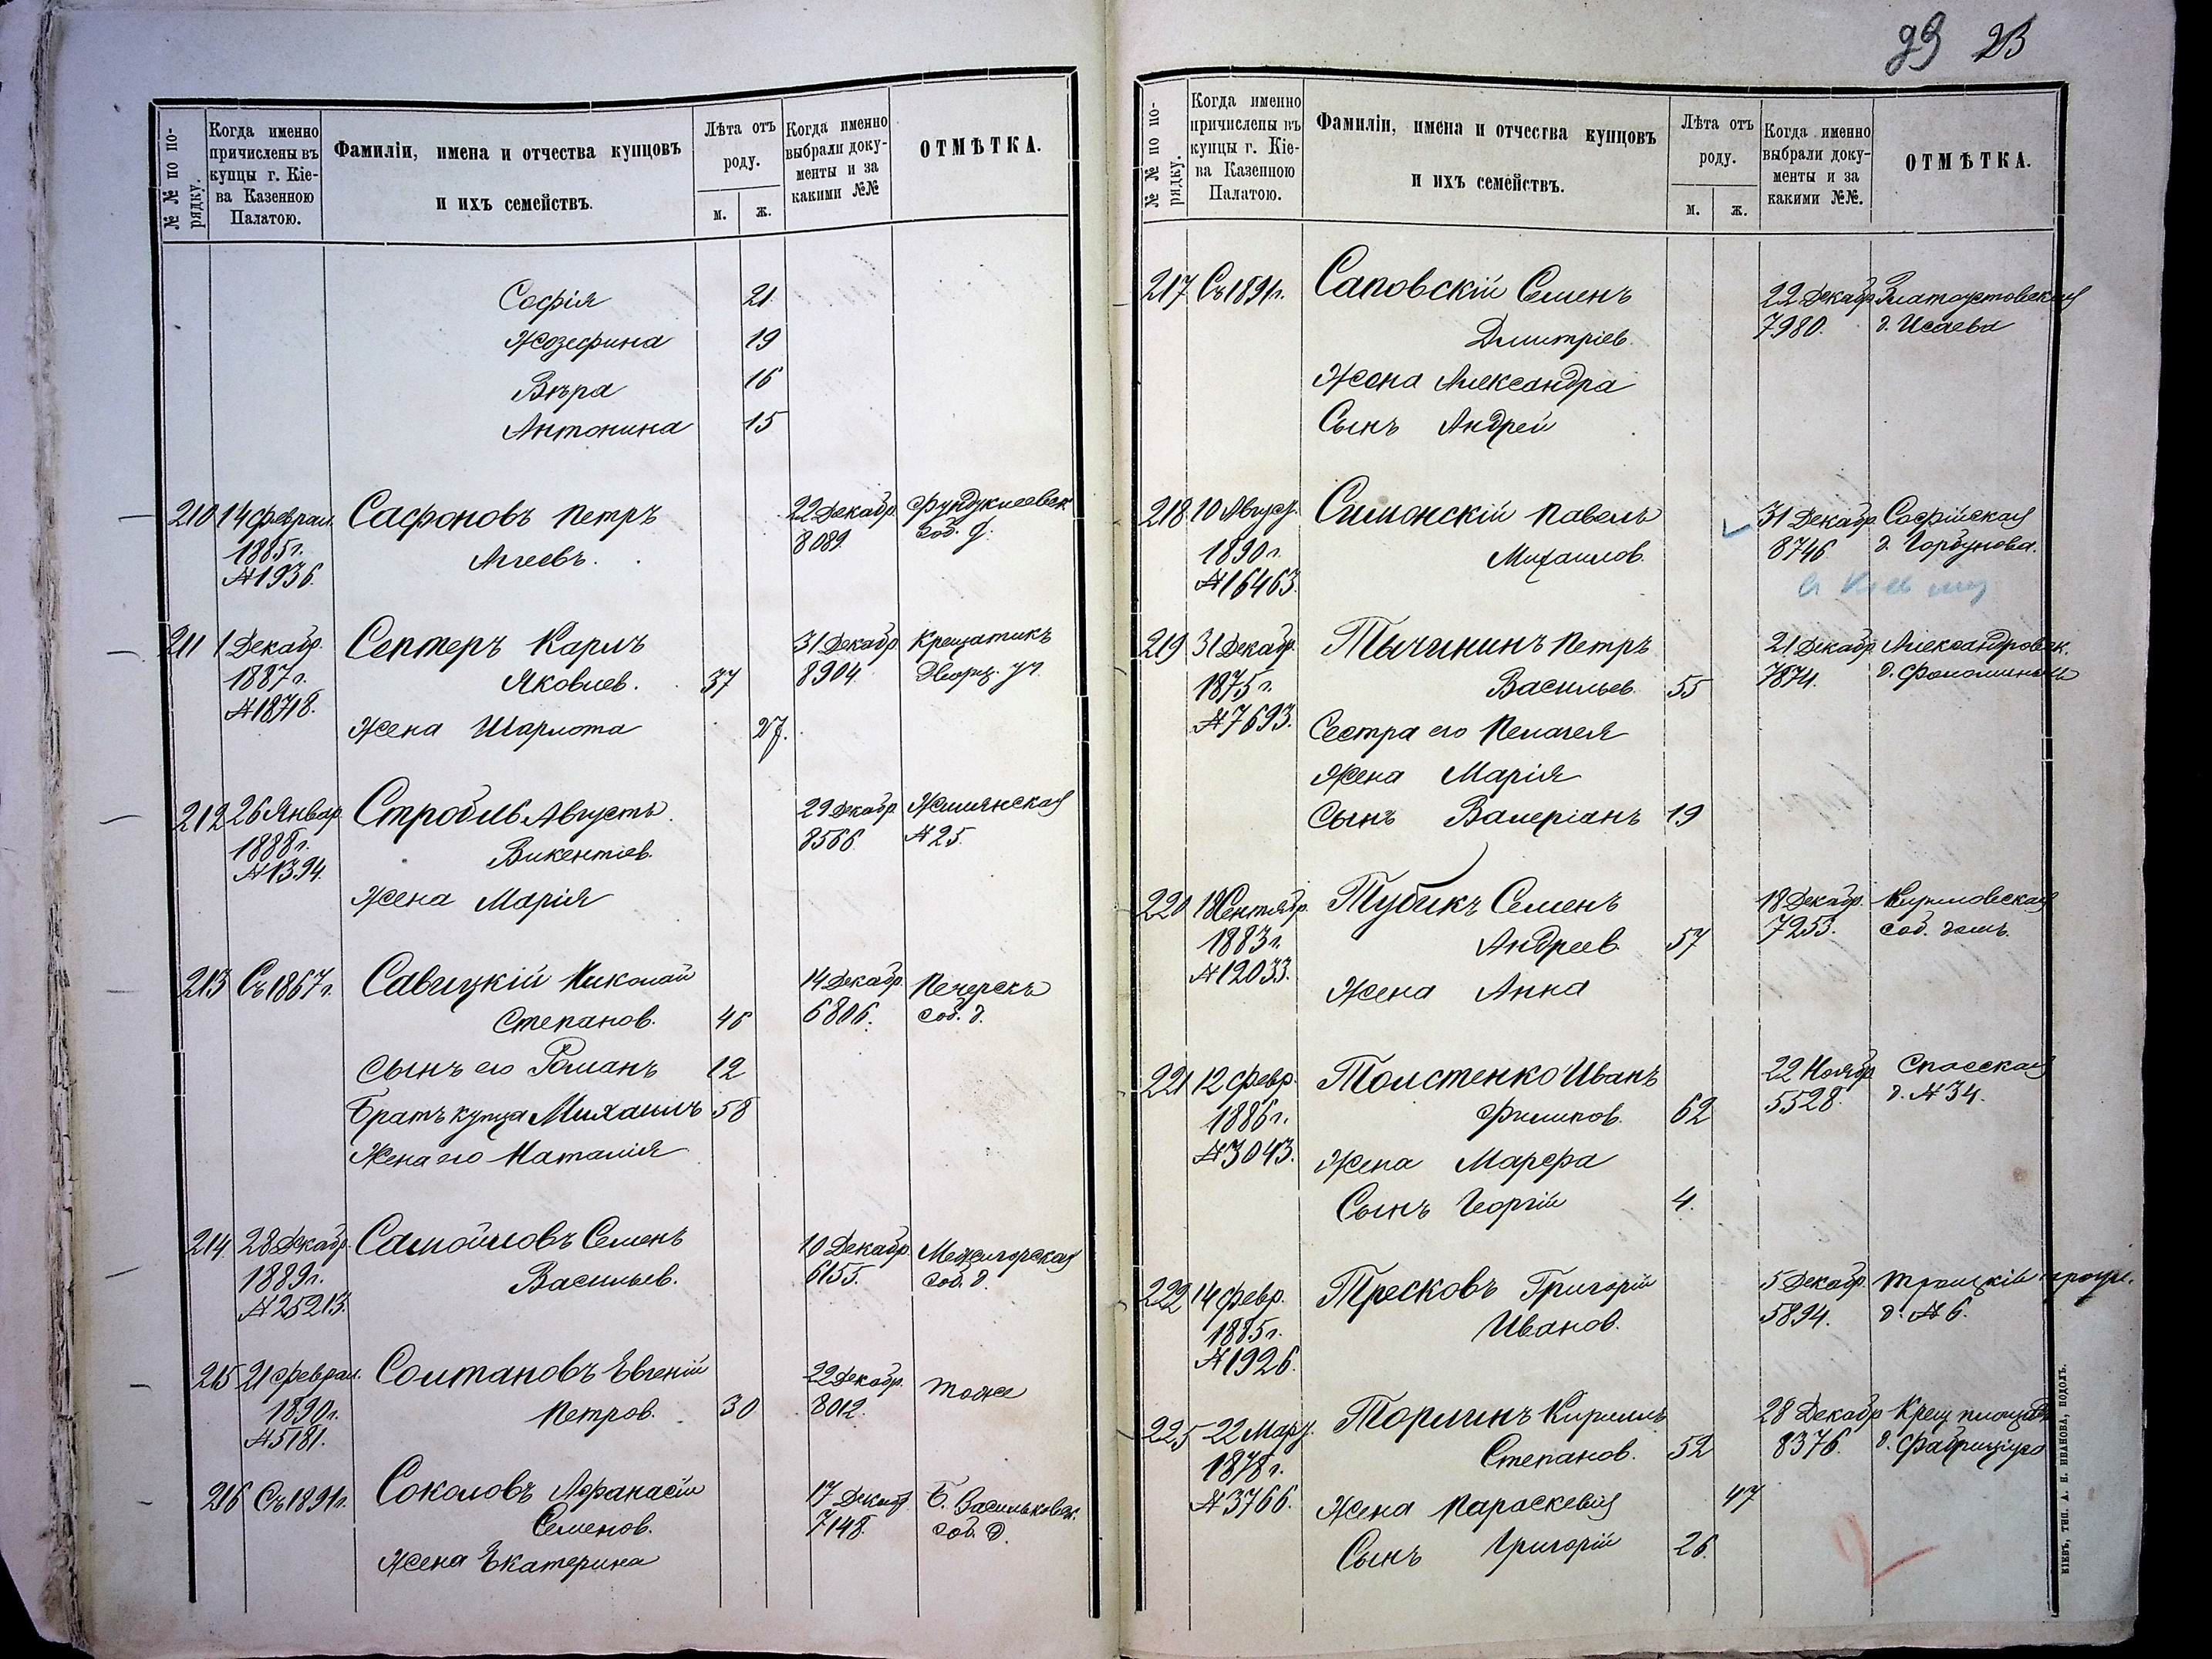 23
№№ по порядку.
Когда именно причислены въ купцы г. Кіева Казенною Палатою.
Фамиліи, имена и отчества купцовъ и ихъ семействъ.
Лѣта отъ роду.
м. ж.
Когда именно выбрали документы и за какими №№
ОТМѢТКА.
Софія 21
Жозефина 19
Вѣра 16
Антонина 15
210 14 феврал. Сафоновъ Петръ 22 Декабр. Фундуклеевск.
1885 г. Агеевъ. 8089. соб. д.
№ 1936.
211 1 Декабр. Септеръ Карлъ 31 Декабр. Крещатикъ
1887 г. Яковлев. 37 8904
№ 18718.
Жена Шарлота 27.
212 26 Январ. Стробль Августъ 29 Декабр. Жилянская
1888 г. Викентіев. 8566 № 25.
№ 1394.
Жена Марія
213 Съ 1867 г. Савицкій Николай 14 Декабр. Печерскъ
Степанов. 46 6806. соб. д.
Сынъ его Романъ 12
Братъ купца Михаилъ 58
Жена его Наталія
214 28 Декабр. Самойловъ Семенъ 10 Декабр. Межигорская
1889 г. Васильев. 6155. соб. д.
№ 25213.
215 21 феврал. Солтановъ Евгеній 22 Декабр. тоже
1890 г. Петров. 30 8012.
№ 5181.
216 Съ 1891 г. Соколовъ Афанасій 17 Декабр. Б. Васильковск.
Семенов. 7148. соб. д.
Жена Екатерина
№№ по порядку.
Когда именно причислены въ купцы г. Кіева Казенною Палатою.
Фамиліи, имена и отчества купцовъ и ихъ семействъ.
Лѣта отъ роду.
м. ж.
Когда именно выбрали документы и за какими №№.
ОТМѢТКА.
217 Съ 1891 г. Саповскій Семенъ 22 Декабр. Златоустовская
Дмитріев. 7980. д. Исаева
Жена Александра
Сынъ Андрей
218 10 Август. Симонскій Павелъ 31 Декабр. Софійская
1890 г. Михаилов. 8746 д. Горбунова.
№ 16463.
219 31 Декабр. Тычининъ Петръ 21 Декабр. Александровск.
1875 г. Васильев. 55 7874.
№ 7693.
Сестра его Пелагея
Жена Марія
Сынъ Валеріанъ 19
220 18 Сентябр. Тубикъ Семенъ 18 Декабр. Кириловская
1883 г. Андреев. 57 7253. соб. домъ.
№ 12033.
Жена Анна
221 12 февр. Толстенко Иванъ 22 Ноябр. Спасская
1886 г. Филипов. 62 5528. д. № 34.
№ 3043.
Жена Марфа
Сынъ Георгій 4.
222 14 февр. Тресковъ Григорій 5 Декабр. Троицкій
1885 г. Иванов. 5894. д. № 6.
№ 1926.
225 22 Март. Торлинъ Кириллъ 28 Декабр. Крещ. площадь
1878 г. Степанов. 52 8376. д. Фабриціуса
№ 3766.
Жена Параскевія 47
Сынъ Григорій 26.
КІЕВЪ, ТИП. А. Н. ИВАНОВА, ПОДОЛЪ.